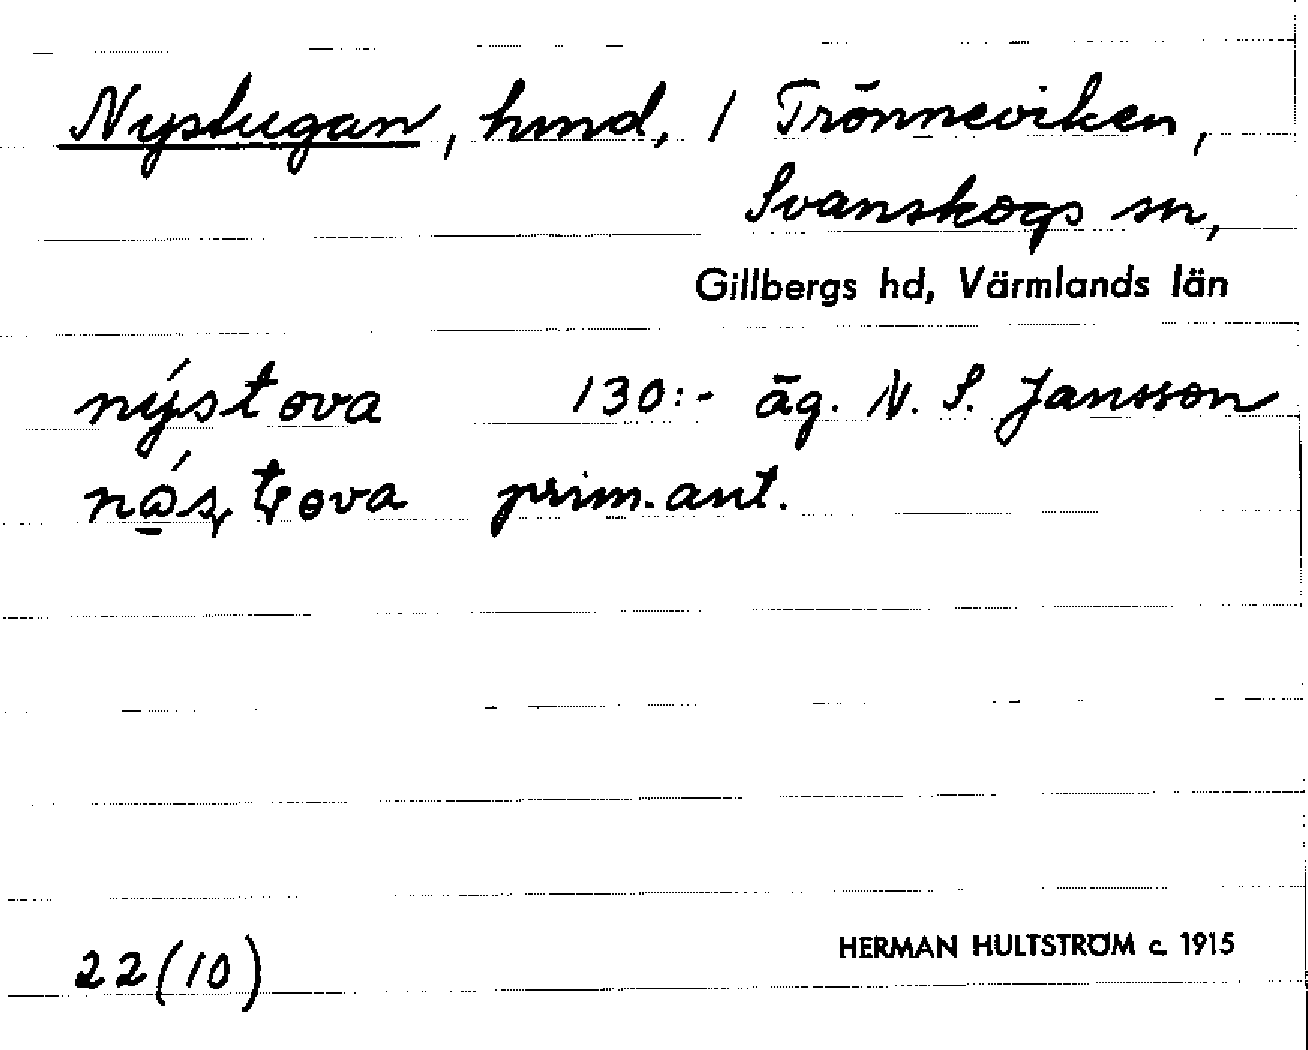 Nystugan, hmd, / Trönneviken,
Svanskogs sn,
Gillbergs hd, Värmlands län
nýstova 130:- äg. N. S. Jansson
prim.ant.
22(10)
HERMAN HULTSTRÖM c. 1915